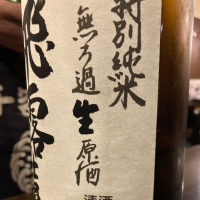 特別純米
無ろ過生原酒
飛露喜
清酒